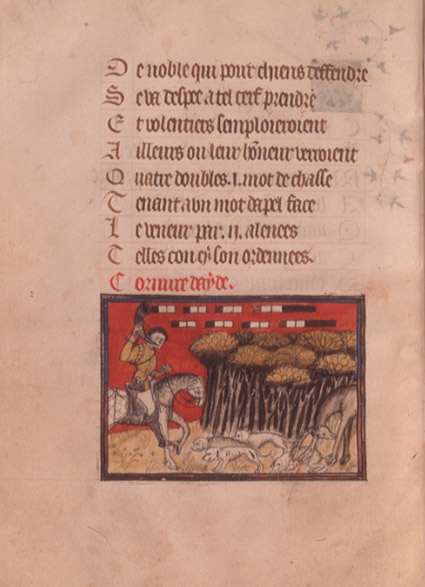 De noble qui pour chiens deffendre
Se va despee a tel cerf prendre
Et volentiers semploieroient
Ailleurs ou leur hõneur verroient
Quatre doubles .ı. mot de chasse
Tenant a vn mot dapel face
Le veneur par .ıı. alences
Telles con cy son ordennees.
Cornure dayde.